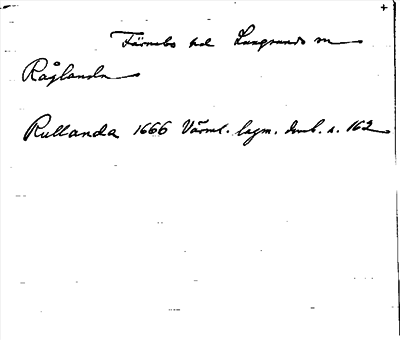 +
Färnebo hd Långserud sn
Råglanda
Rullanda 1666 Värml. lagm. domb. s. 162